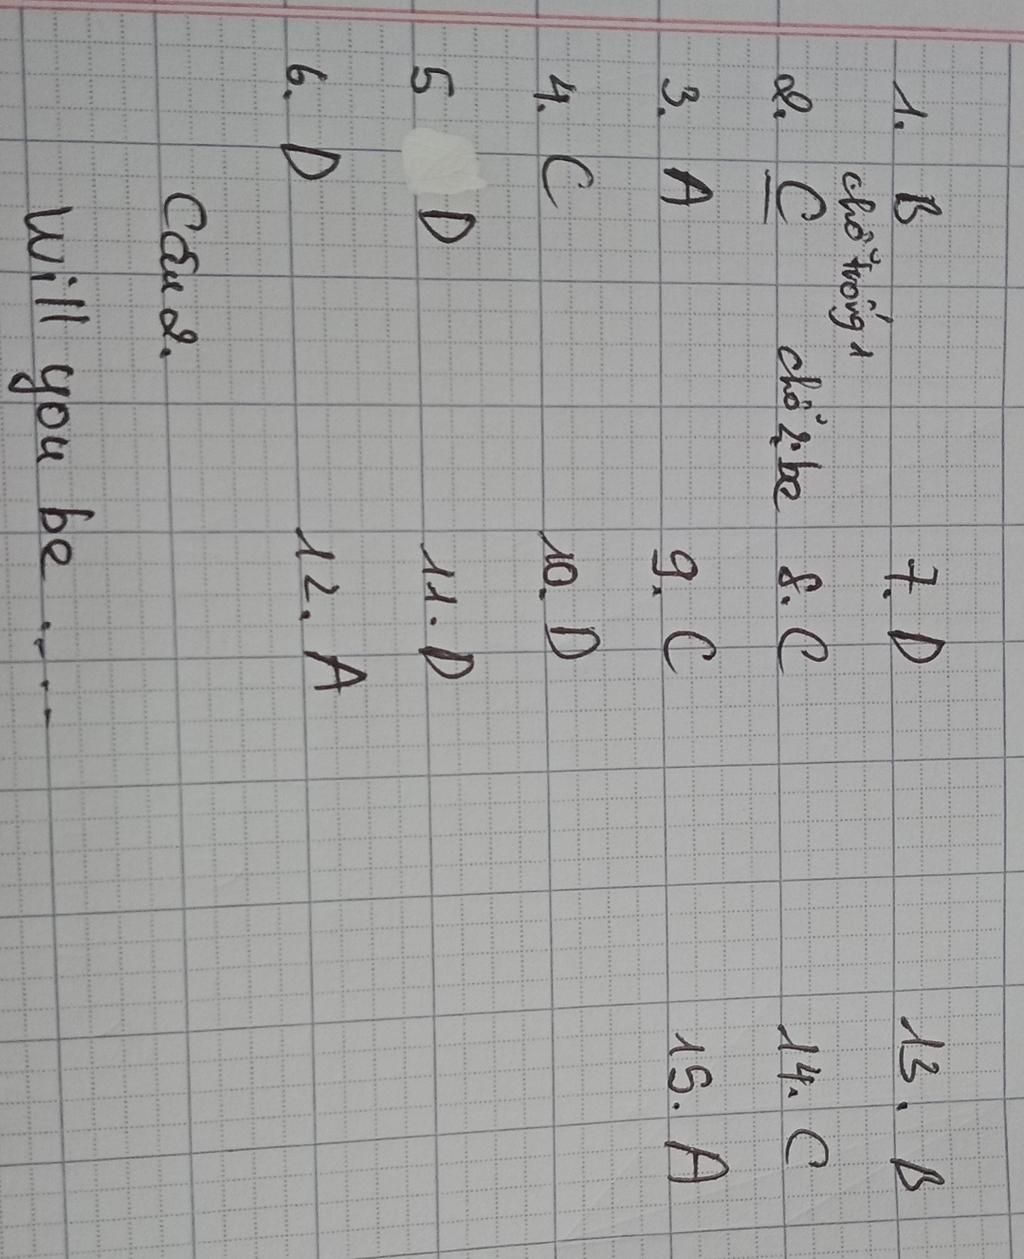 1. B 7. D 13. B
chỗ trống 1
2. C chỗ 2: be 8. C 14. C
3. A 9. C 15. A
4. C 10. D
5 D 11. D
6. D 12. A
Câu 2.
Will you be ....